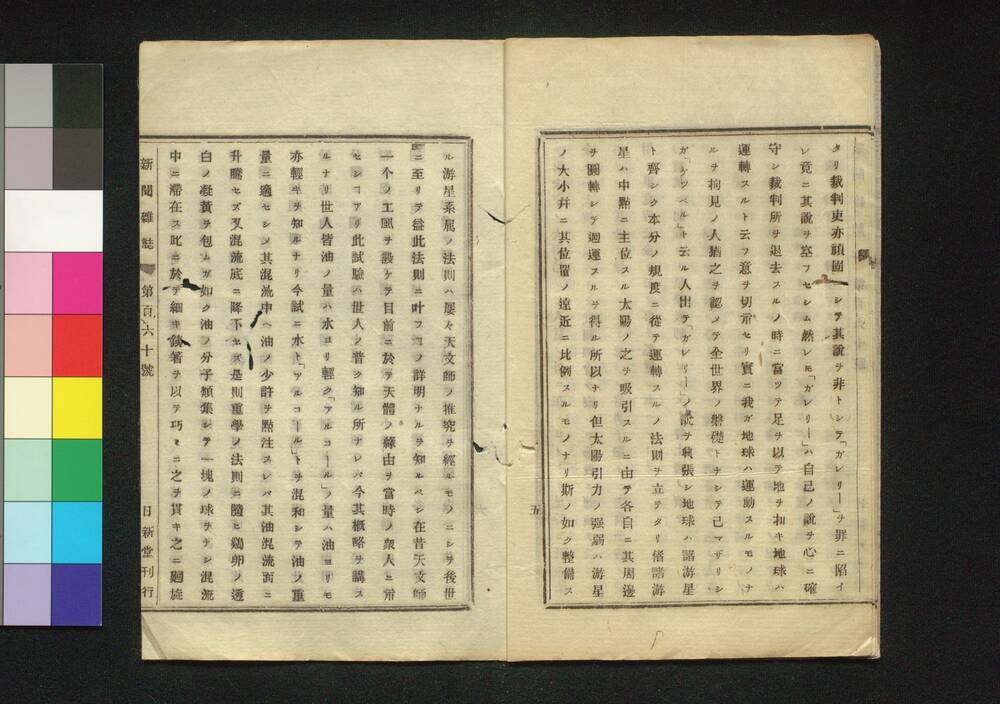 タリ裁判吏亦頑固ニシテ其説ヲ非トシテ「ガレリー」ヲ罪ニ陷イ
レ竟ニ其説ヲ窒フセシム然レモ「ガレリー」ハ自己ノ説ヲ心ニ確
守シ裁判所ヲ退去スルノ時ニ當ツテ足ヲ以テ地ヲ扣キ地球ハ
運轉スルト云フ意ヲ切示セリ實ニ我ガ地球ハ運動スルモノナ
ルヲ拘見ノ人猶之ヲ認メテ全世界ノ磐礎トナシテ己マザリシ
ガ「ケツペル」ト云ル人出テ「ガレリー」ノ説ヲ興張シ地球ハ諸游星
ト齊シク本分ノ規度ニ從テ運轉スルノ法則ヲ立テタリ偖諸游
星ハ中㸃ニ主位スル太陽ノ之ヲ吸引スルニ由テ各自ニ其周邊
ヲ圜轉シテ迴運スルヲ得ル所以ナリ但太陽引力ノ强弱ハ游星
ノ大小幷ニ其位置ノ遠近ニ比例スルモノナリ斯ノ如ク整備ス
五
ル游星系属ノ法則ハ屢々天文師ノ推究ヲ經ルモノニシテ後世
ニ至リテ益此法則ニ叶フコノ詳明ナルヲ知ルベシ在昔天文師
一个ノ工風ヲ設ケテ目前ニ於テ天體ノ緣由ヲ當時ノ衆人ニ示
セシコアリ此試驗ハ世人ノ普ク知ル所ナレバ今其槪略ヲ講ス
ルナリ世人皆油ノ量ハ水ヨリ輕ク「アルコール」ノ量ハ油ヨリモ
亦輕キヲ知ルナリ今試ニ水ト「アルコール」トヲ混和シテ油ノ重
量ニ適セシメ其混流中ヘ油ノ少許ヲ㸃注スレバ其油混流面ニ
升騰セズ又混流底ニ降下セズ是則重學ノ法則ニ隨ヒ鷄卵ノ透
白ノ凝黃ヲ包ムガ如ク油ノ分子類集シテ一塊ノ球ヲナシ混流
中ニ滯在ス此ニ於テ細キ鐵箸ヲ以テ巧ミニ之ヲ貫キ之ニ廻旋
新聞雜誌 第百六十號 日新堂刊行